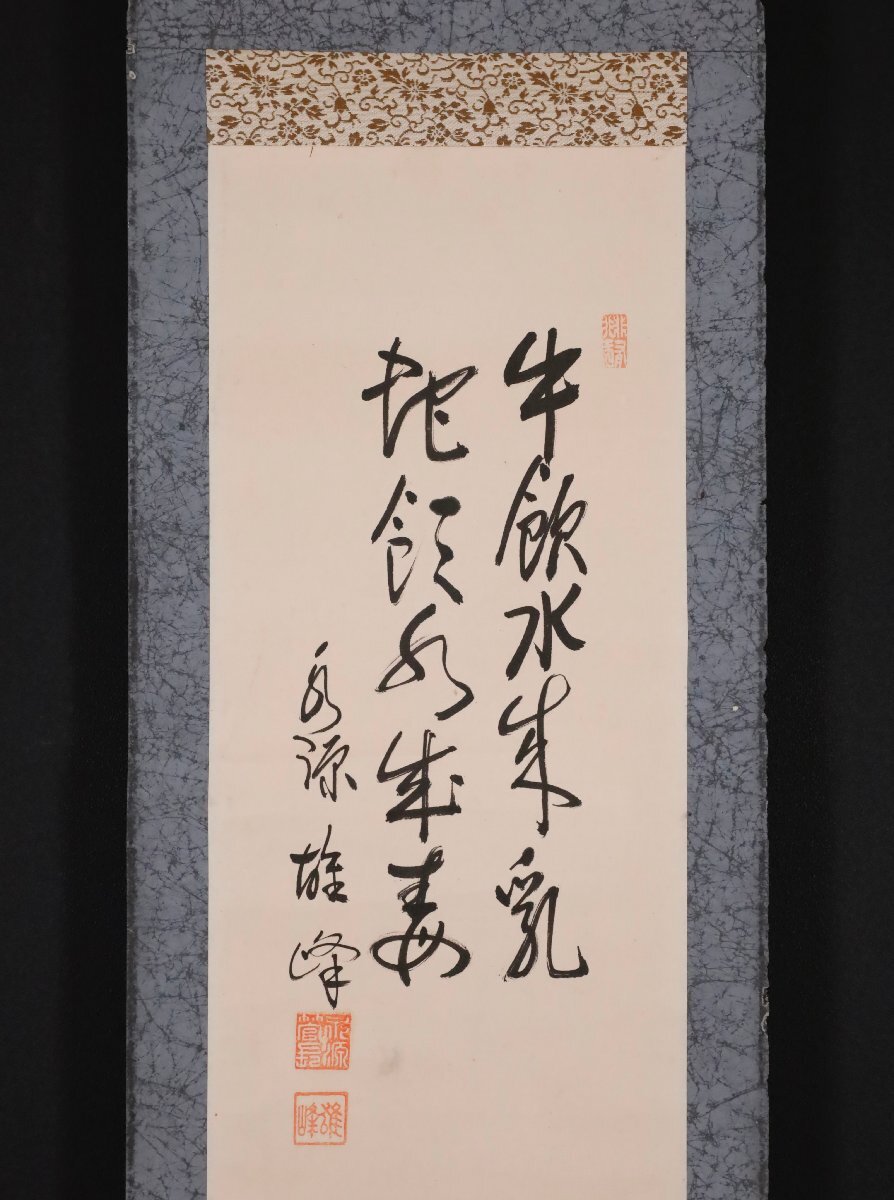 牛飲水成乳
蛇飲水成毒
永源雄峰
雄峰